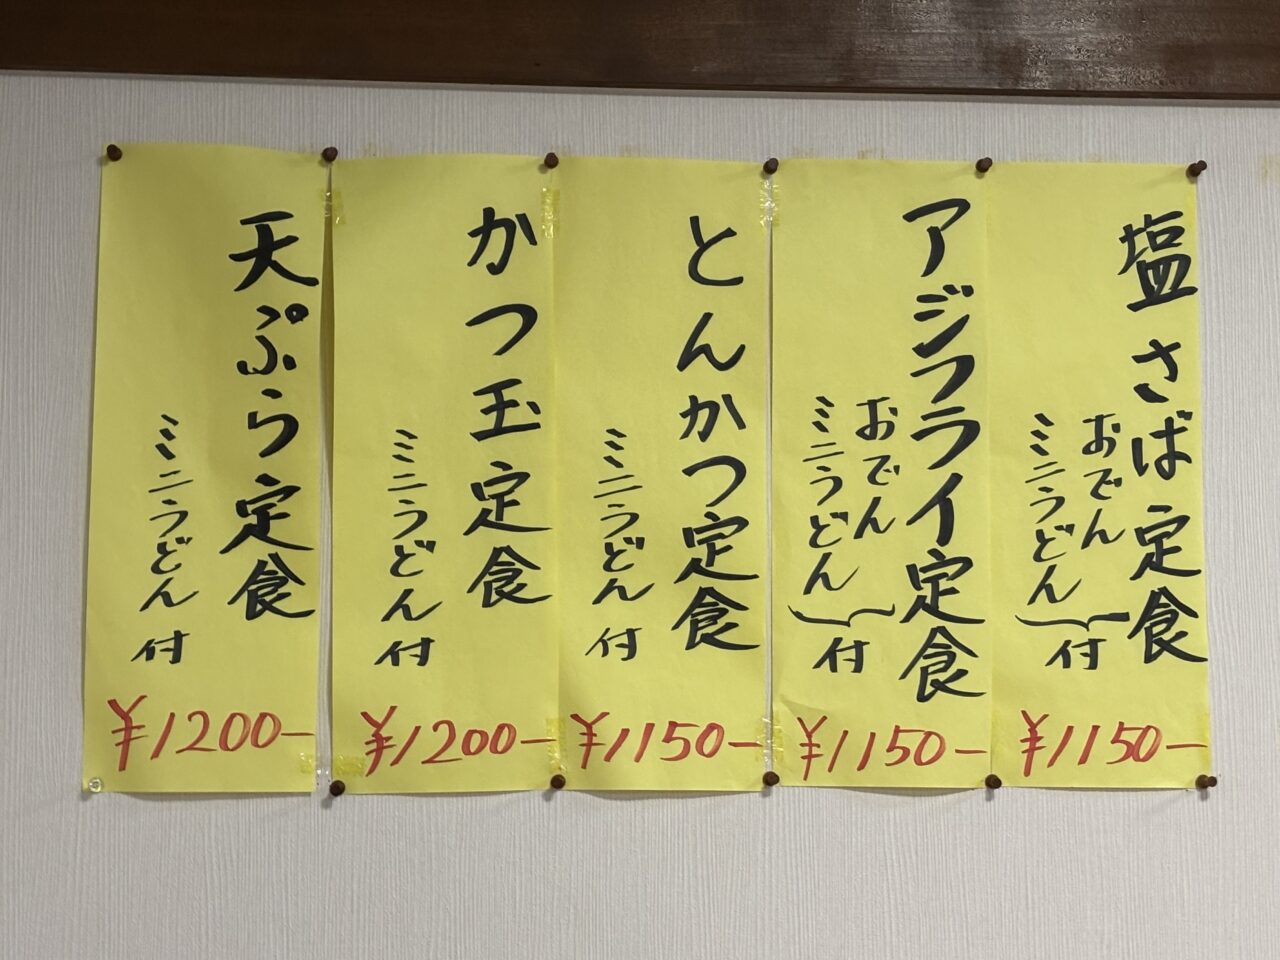 塩さば定食
おでん
ミニうどん
付
¥1150-
アジフライ定食
おでん
ミニうどん
付
¥1150-
とんかつ定食
ミニうどん付
¥1150-
かつ玉定食
ミニうどん付
¥1200-
天ぷら定食
ミニうどん付
¥1200-